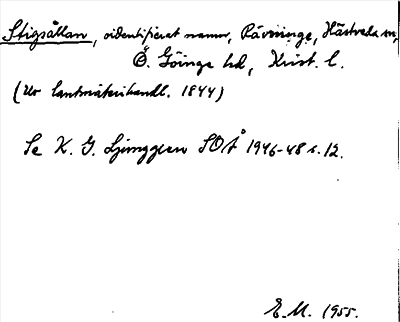 Stigsållan, oidentifierat namn, Rävninge, Hästveda sn,
Ö. Göinge hd, Krist. l.
(Ur lantmäterihandl. 1844)
Se K. G. Ljunggren SOÅ 1946-48 s. 12.
E.M. 1955.